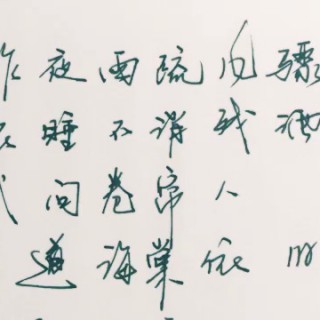 昨夜雨疏风骤
睡不消残酒
问卷帘人
道海棠依旧